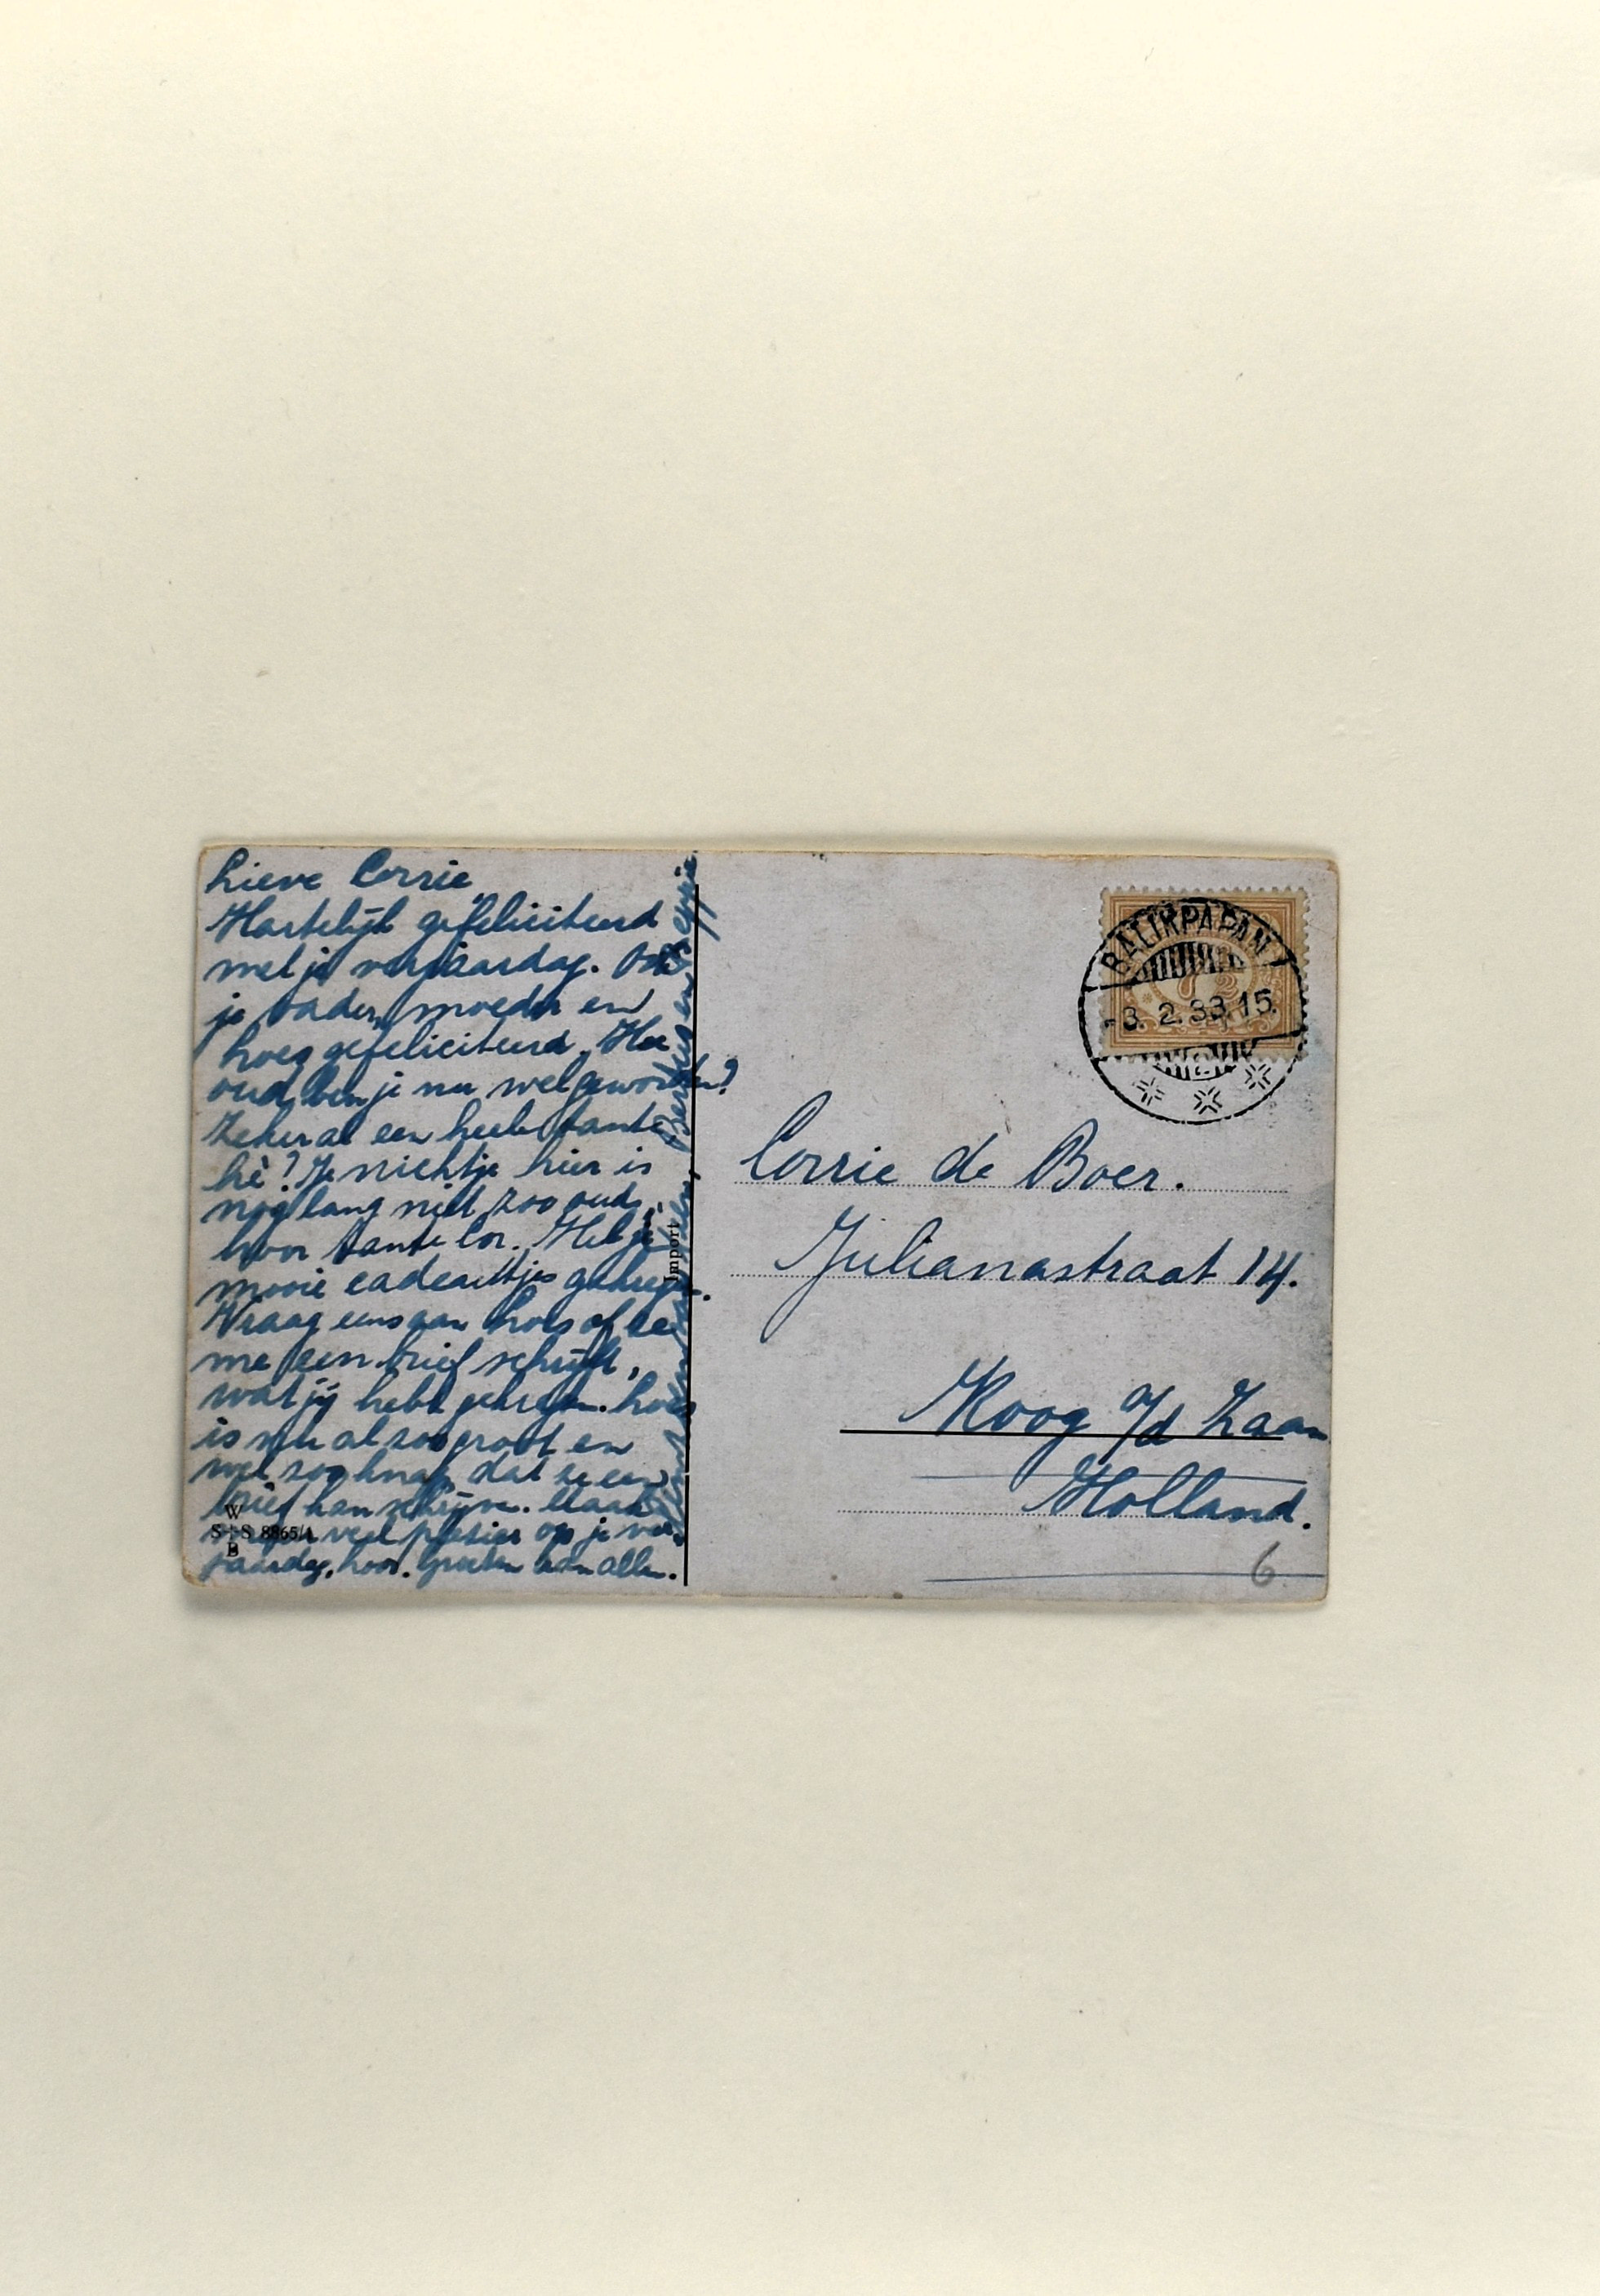 Lieve Corrie
Hartelijk gefeliciteerd
met je verjaardag. Ook
je vader, moeder en
Loes gefeliciteerd. Hoe
oud ben je nu wel geworden?
Zeker al een heele tante
hè? Je nichtje hier is
nog lang niet zoo oud,
hoor tante Cor. Heb je
mooie cadeautjes gekregen.
Vraag eens aan Loes of ze
me een brief schrijft,
wat jij hebt gekregen. Loes
is nu al zoo groot en
wel zoo knap dat ze een
brief kan schrijven. Maak
maar veel plezier op je ver-
jaardag, hoor. Groeten aan allen.
Bertus en Seppie
Import
W
S+S 8865/1
B
BALIKPAPAN
-3. 2. 33.15.
Corrie de Boer.
Julianastraat 14.
Koog a/d Zaan
Holland.
6